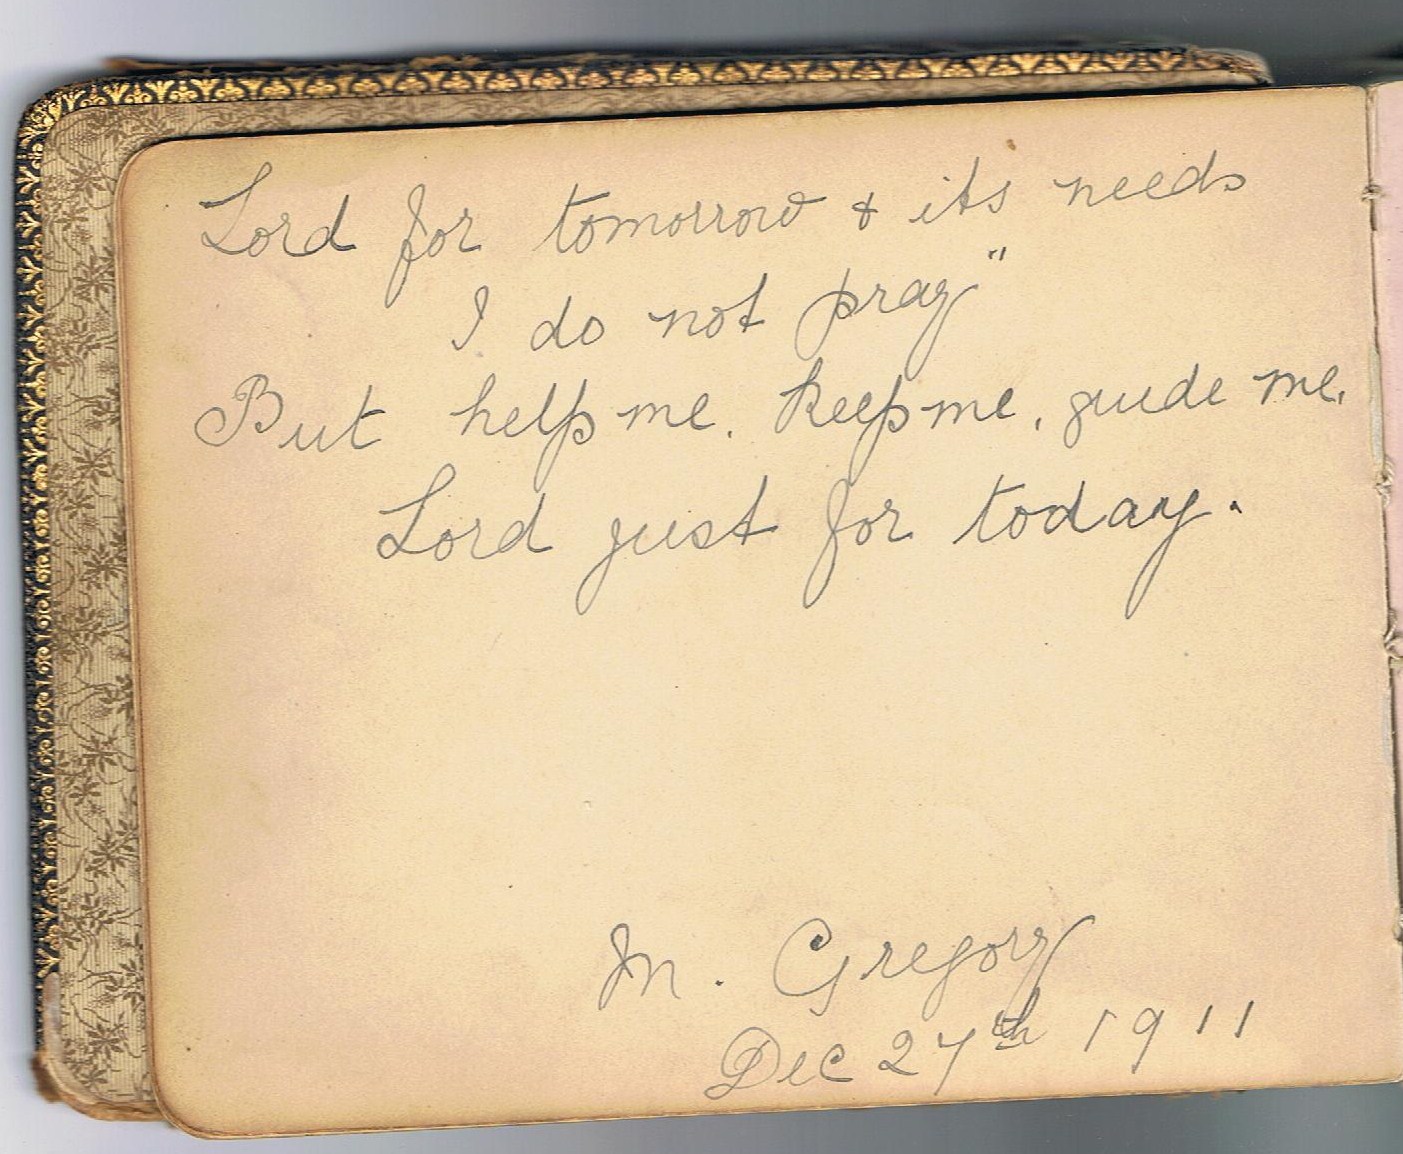 Lord for tomorrow & its needs
I do not pray"
But help me. keep me, guide me.
Lord just for today.
M. Gregory
Dec 27th 1911